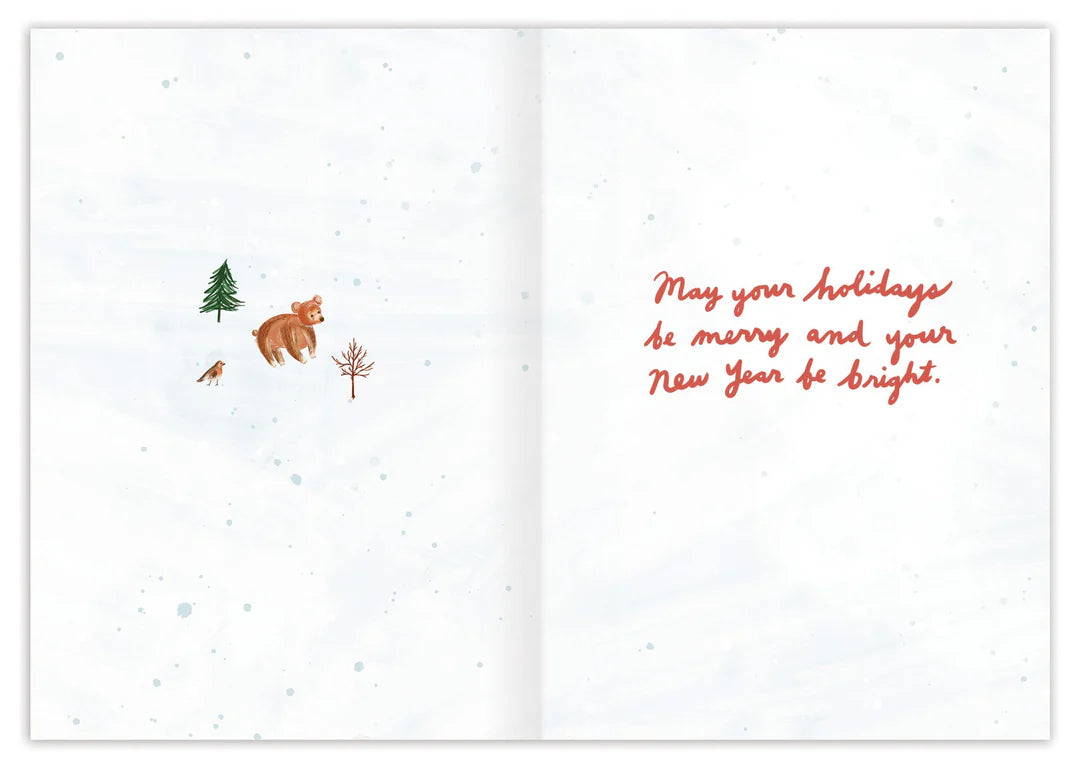 May your holidays
be merry and your
New Year be bright.